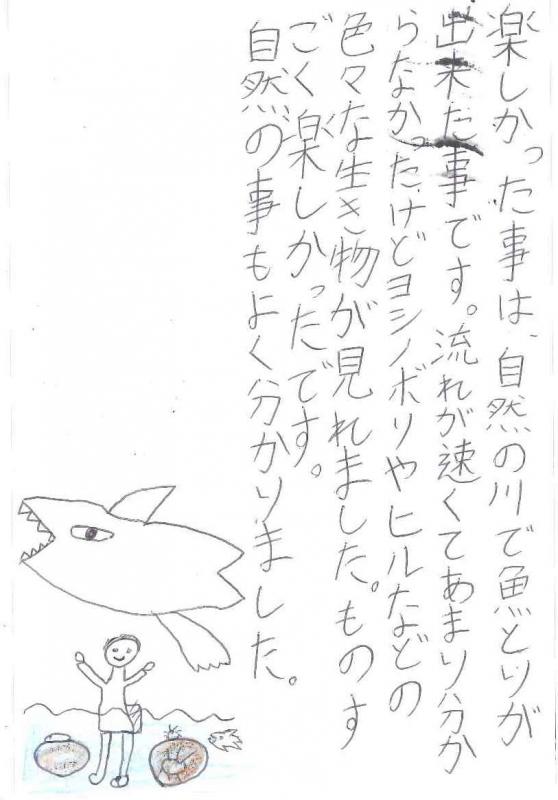 楽しかった事は、自然の川で魚とりが
出来た事です。流れが速くてあまり分か
らなかったけどヨシノボリやヒルなどの
色々な生き物が見れました。ものす
ごく楽しかったです。
自然の事もよく分かりました。